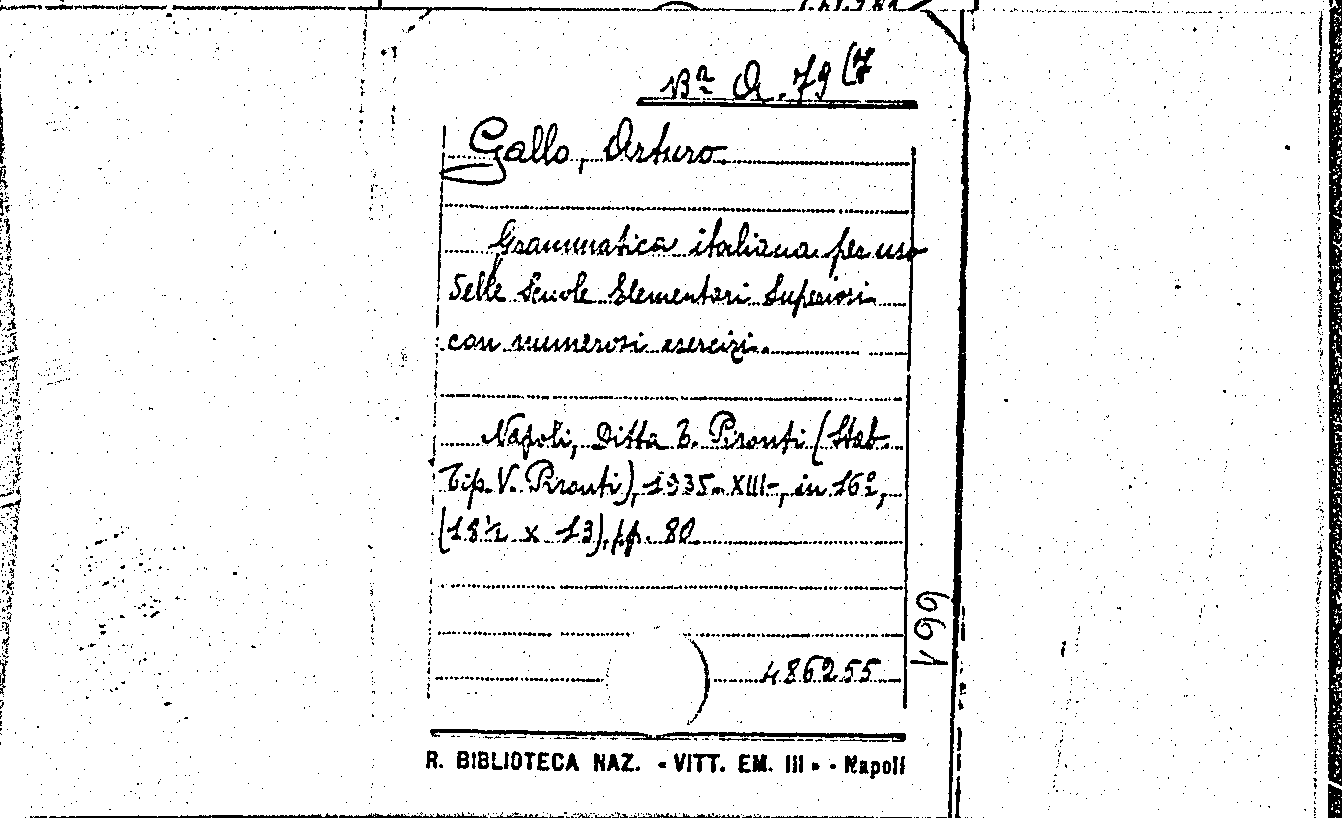 Bª Q. 79 (7
Gallo, Arturo.
Grammatica italiana per uso
delle Scuole Elementari Superiori
con numerosi esercizi.
Napoli, Ditta E. Pironti (Stab.
Tip. V. Pironti), 1935-XIII-, in 16º,
(18½ x 13), pp. 80
199
486255
R. BIBLIOTECA NAZ. - VITT. EM. III - - Napoli